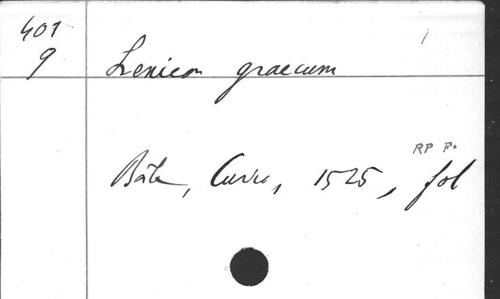 401
9
Lexicon graecum
RP F.
Bâle, Curio, 1525, fol